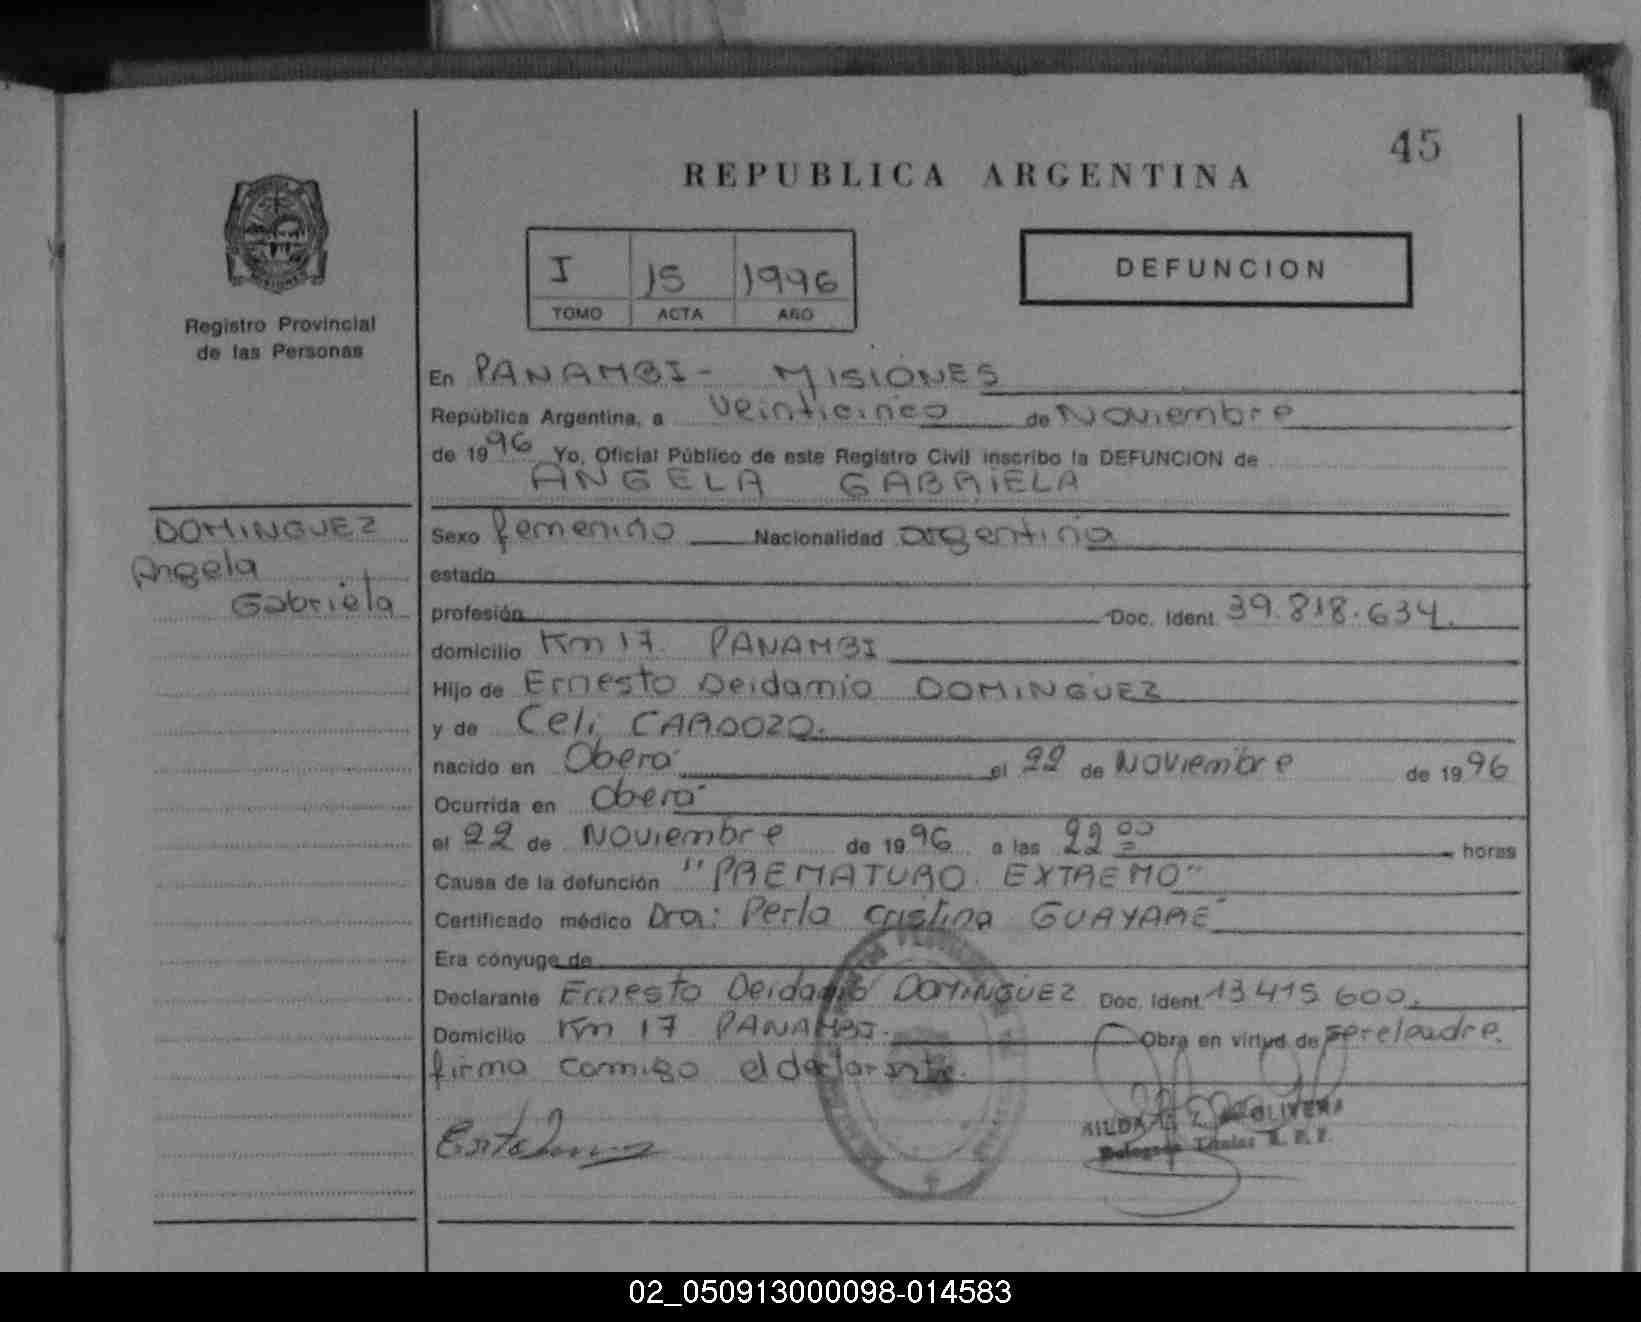 45
REPUBLICA ARGENTINA
I 15 1996
TOMO ACTA AÑO
DEFUNCION
Registro Provincial
de las Personas
DOMINGUEZ
Angela
Gabriela
En PANAMBI - MISIONES
República Argentina, a veinticinco de Noviembre
de 1996 Yo, Oficial Público de este Registro Civil inscribo la DEFUNCION de
ANGELA GABRIELA
Sexo femenino Nacionalidad argentina
estado
profesión Doc. Ident. 39.818.634.
domicilio Km 17 PANAMBI
Hijo de Ernesto Deidamio DOMINGUEZ
y de Celi CARDOZO.
nacido en Oberá el 22 de Noviembre de 1996
Ocurrida en Oberá
el 22 de Noviembre de 1996 a las 22 00 horas
Causa de la defunción "PREMATURO EXTREMO"
Certificado médico Dra: Perla Cristina GUAYARE
Era cónyuge de
Declarante Ernesto Deidamio DOMINGUEZ Doc. Ident. 13415600.
Domicilio Km 17 PANAMBI. Obra en virtud de ser el padre.
firma comigo el declarante.
OLIVERA
Titular R. P. P.
02_050913000098-014583